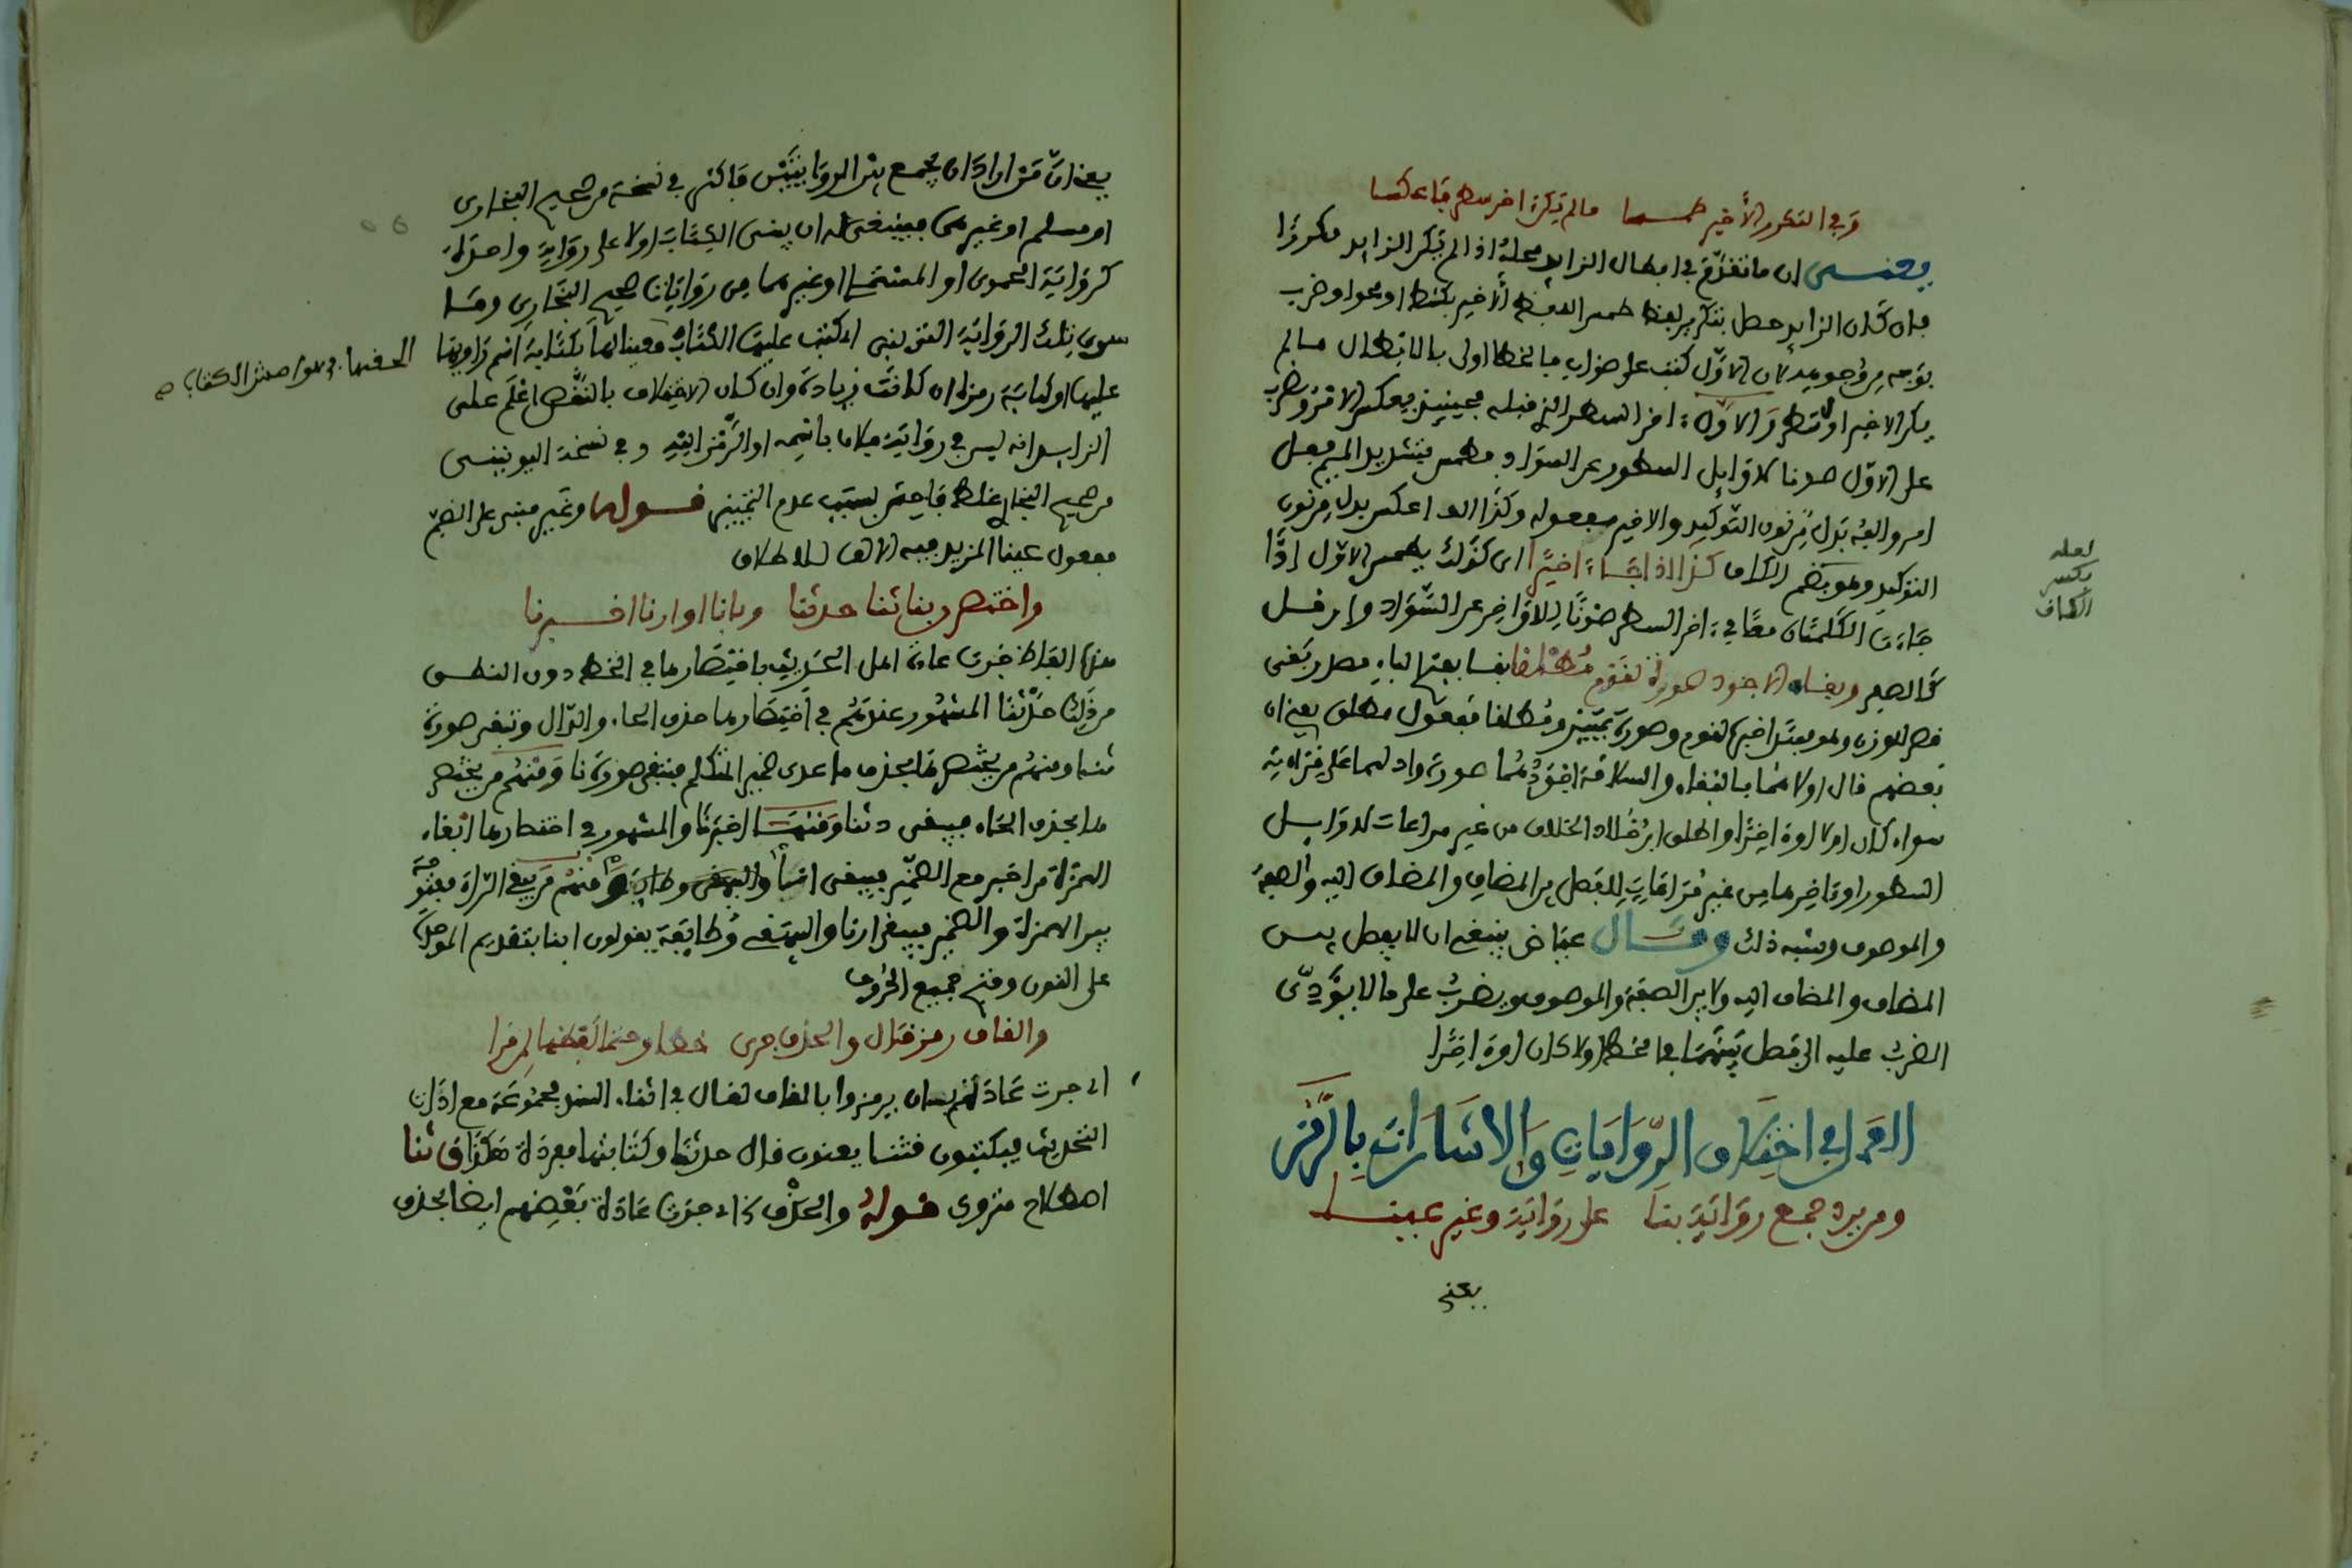 وفي المتكرر الأخير طمسا ما لم يكن اخر سطر فاعكسا
يعني ان ما تقدم في ابطال الزايد محله اذا لم يكن الزايد مكررا
فان كان الزايد حصل بتكرير لفظ طمس اللفظ الاخير بكشط او محو او ضرب
لان الاول كتب على صواب فالخطا اولى بالابطال ما لم
يكن الاخير اول سطر والاول اخر السطر الذي قبله فحينئذ يعكس الامر ويضرب
على الاول صونا لاوايل السطور عن السواد وطمس بتشديد الميم فعل
امر والفه بدل من نون التوكيد والاخير مفعوله وكذا الف اعكس بدل من نون
التوكيد وهو بضم الكاف كذا اذا جاءا اخيرا اي كذلك يطمس الاول اذا
جاءت الكلمتان معا في اخر السطر صونا للاواخر عن السواد
لعله
بكسر
الكاف
قصر للوزن وهو مبتدا خبره لقوم وصورة تمييز ومطلقا مفعول مطلق يعني ان
بعضهم قال اولاهما بالبقاء والسلامة اجودهما صورة وادلهما على قراءته
سواء كان اولا او اخرا واطلق ابن خلاد الخلاف من غير مراعات لاوايل
السطور واواخرها من غير مراعات للفصل بين المضاف والمضاف اليه والصفة
والموصوف وشبه ذلك وقال عياض ينبغي ان لا يفصل بين
المضاف والمضاف اليه ولا بين الصفة والموصوف ويضرب على ما لا يؤدي
الضرب عليه الى فصل بينهما في الخط اولا كان او اخرا
العمل في اختلاف الروايات والاشارات بالرمز
ومريد جمع رواية بنا على رواية وغير عينا
يعني
يعني ان من اراد ان يجمع بين الروايتين فاكثر في نسخة من صحيح البخاري
او مسلم او غيرهما فينبغي له ان يبني الكتاب اولا على رواية واحدة
كرواية الحموي او المستملي او غيرهما من روايات صحيح البخاري وما
سوى تلك الرواية التي بنى اي كتب عليها الكتاب معينا لها بكتابة اسم راويها
عليها او كتابة رمزه ان كانت زيادة وان كان الاختلاف بالنقص اعلم على
الزايد انه ليس في رواية فلان باسمه او الرمز اليه وفي نسخة اليونيني
من صحيح البخاري غلط فاحش بسبب عدم التمييز قوله وغير مبني على الضم
مفعول عينا المزيد فيه الالف للاطلاق
واختصروا بنا ثنا حدثنا وبانا او ارنا اخبرنا
هذه الفاظ جرت عادة اهل الحديث باختصارها في الخط دون النطق
من ذلك حدثنا المشهور عندهم في اختصارها حذف الحاء والدال وتبقى صورة
ثنا ومنهم من يختصرها بحذف ما عدى ضمير المتكلم فتبقى صورة نا ومنهم من يختصر
ها بحذف الحاء فيبقى دثنا ومنها اخبرنا والمشهور في اختصارها ابقاء
الهمزة من اخبر مع الضمير فيبقى انا ومنهم من يبقي الراء مفتوحة
بين الهمزة والضمير فيبقى ارنا والبيهقي وطائفة يقولون ابنا بتقديم الموحدة
على النون وفتح جميع الحروف
والقاف رمز قال والحذف جرى خطا وحتما لفظها لمن قرا
اي جرت عادتهم بان يرمزوا بالقاف لقال في اثناء السند مجموعة مع اداة
التحديث فيكتبون قثنا يعنون قال حدثنا وكتابتها مفردة هكذا ق ثنا
اصطلاح متروك قوله والحذف اي جرت عادة بعضهم ايضا بحذف